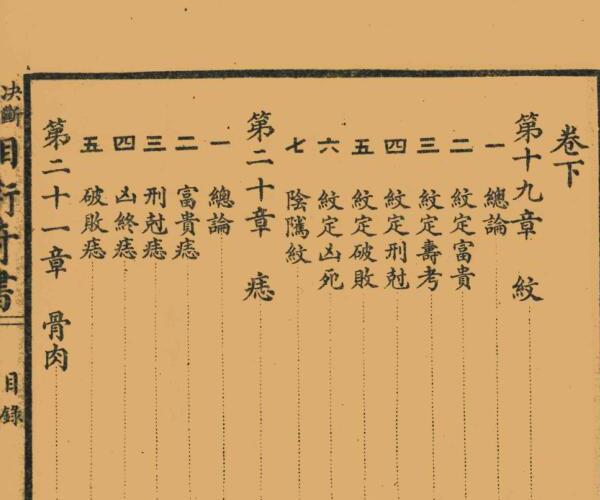 卷下
第十九章 紋
一 總論
二 紋定富貴
三 紋定壽考
四 紋定刑尅
五 紋定破敗
六 紋定凶死
七 陰隲紋
第二十章 痣
一 總論
二 富貴痣
三 刑尅痣
四 凶終痣
五 破敗痣
第二十一章 骨肉
决斷相術奇書 目錄